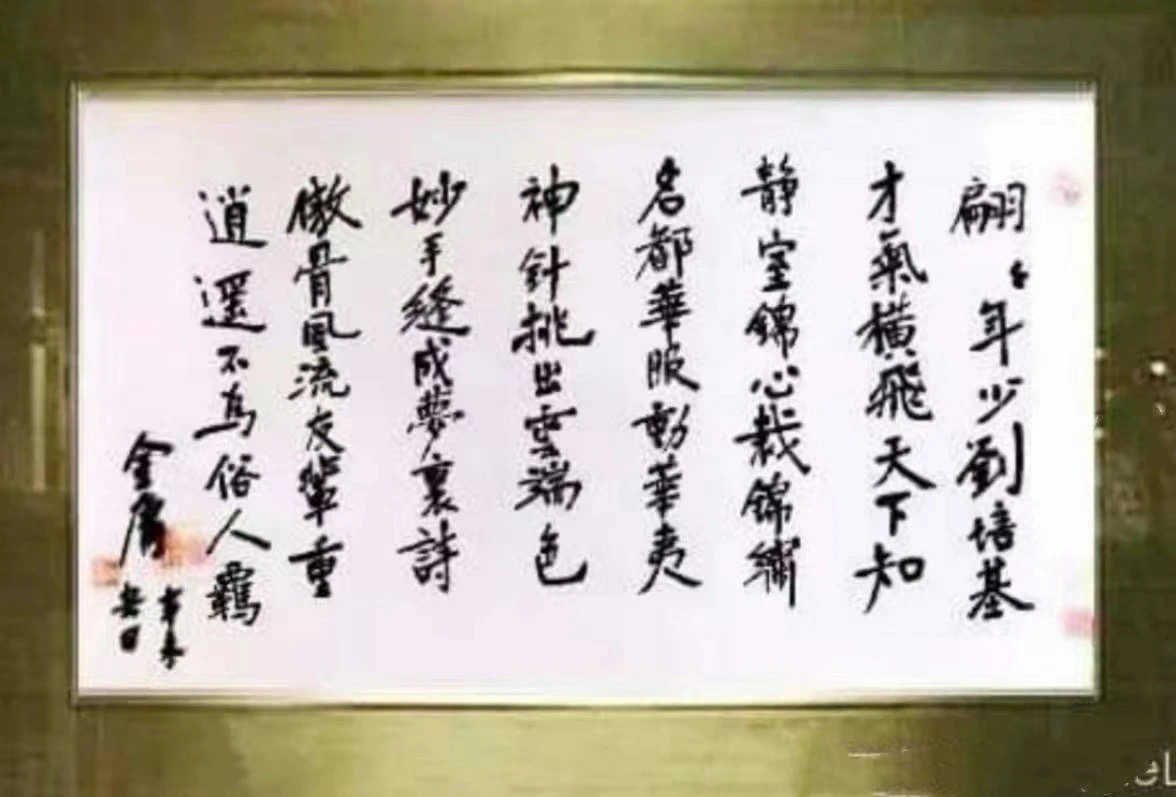 翩〻年少劉培基
才氣橫飛天下知
靜室錦心裁錦繡
名都華服動華夷
神針挑出雲端色
妙手縫成夢裏詩
傲骨風流友輩重
逍遥不爲俗人羈
金庸